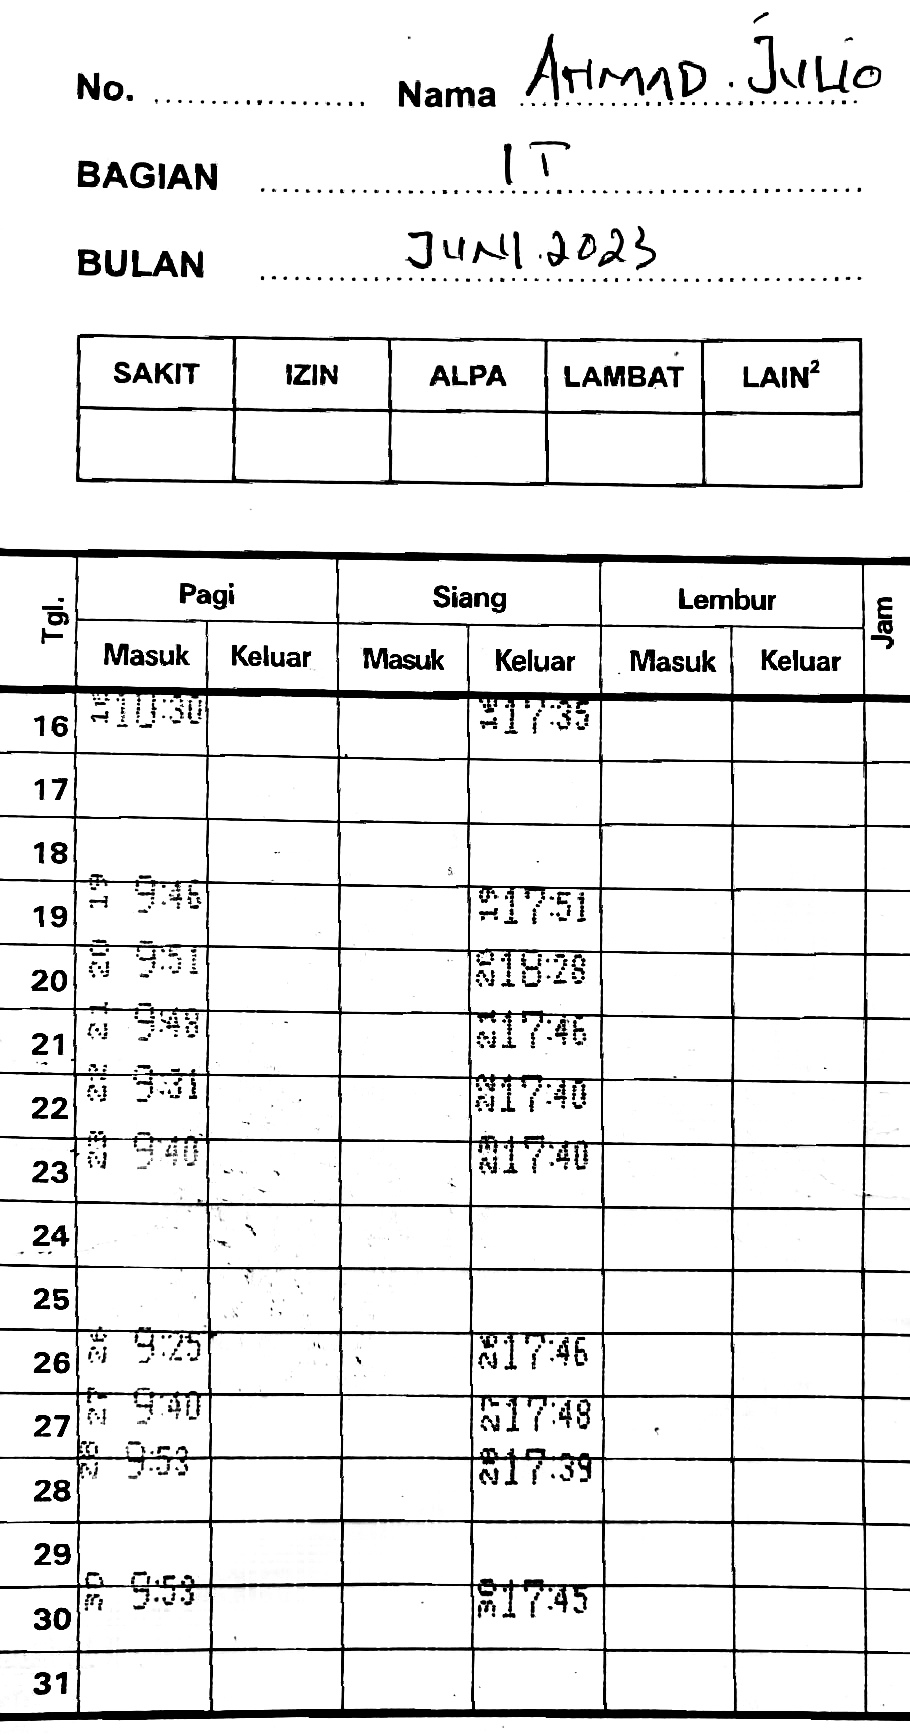 No. .................. Nama AHMAD. JULIO
BAGIAN IT
BULAN JUNI. 2023
SAKIT IZIN ALPA LAMBAT LAIN²
Tgl. Pagi Siang Lembur Jam
Masuk Keluar Masuk Keluar Masuk Keluar
16 16 10:30 16 17:35
17
18
19 19 9:46 19 17:51
20 20 9:51 20 18:28
21 21 9:48 21 17:46
22 22 9:31 22 17:40
23 23 9:40 23 17:40
24
25
26 26 9:25 26 17:46
27 27 9:40 27 17:48
28 28 9:53 28 17:39
29
30 30 9:53 30 17:45
31